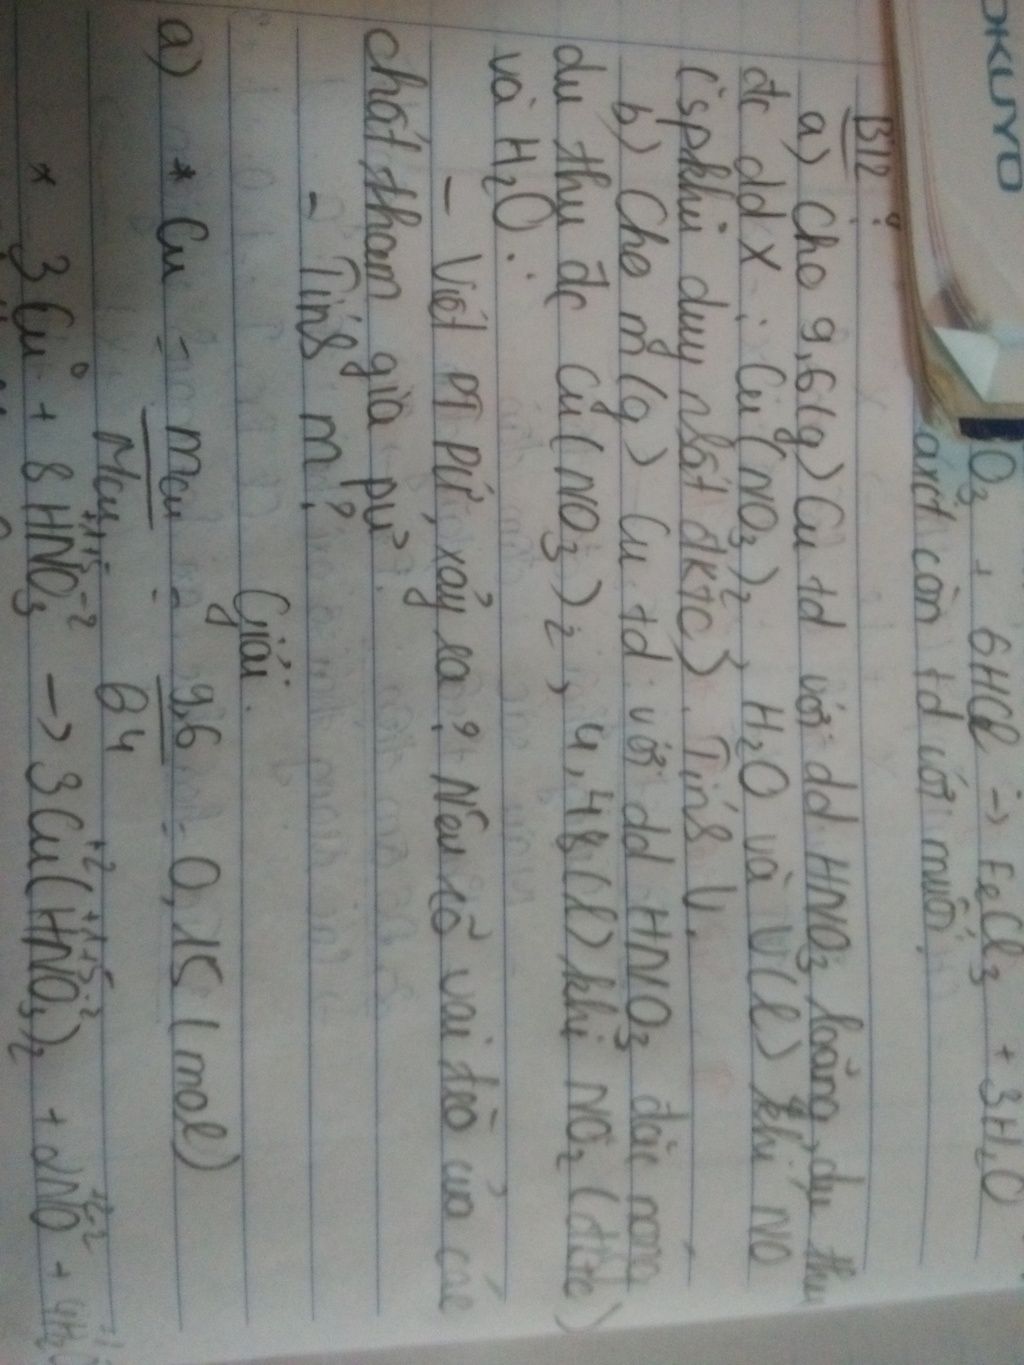 OKUYO
O₃ + 6HCl → FeCl₃ + 3H₂O
còn td với muối.
B12:
a) Cho 9,6(g) Cu td với dd HNO₃ loãng, dư thu
đc dd X: Cu(NO₃)₂, H₂O và V(l) khí NO
(spkhử duy nhất đktc). Tính V.
b) Cho m(g) Cu td với dd HNO₃ đặc nóng
dư thu đc Cu(NO₃)₂, 4,48(l) khí NO₂ (đktc)
và H₂O.
- Viết PT pứ xảy ra? Nêu rõ vai trò của các
chất tham gia pứ?
- Tính m?
Giải.
a) * Cu = mCu = 9,6 = 0,15 (mol)
MCu 64
* 3Cu⁰ + 8HNO₃ → 3Cu(HNO₃)₂ + 2NO + 4H₂O
+1+5-2 +2 +1+5-2 +2-2